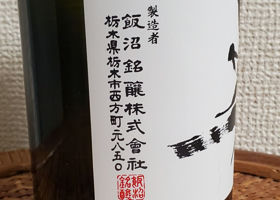 製造者
飯沼銘醸株式會社
栃木県栃木市西方町元八五〇
飯沼銘醸